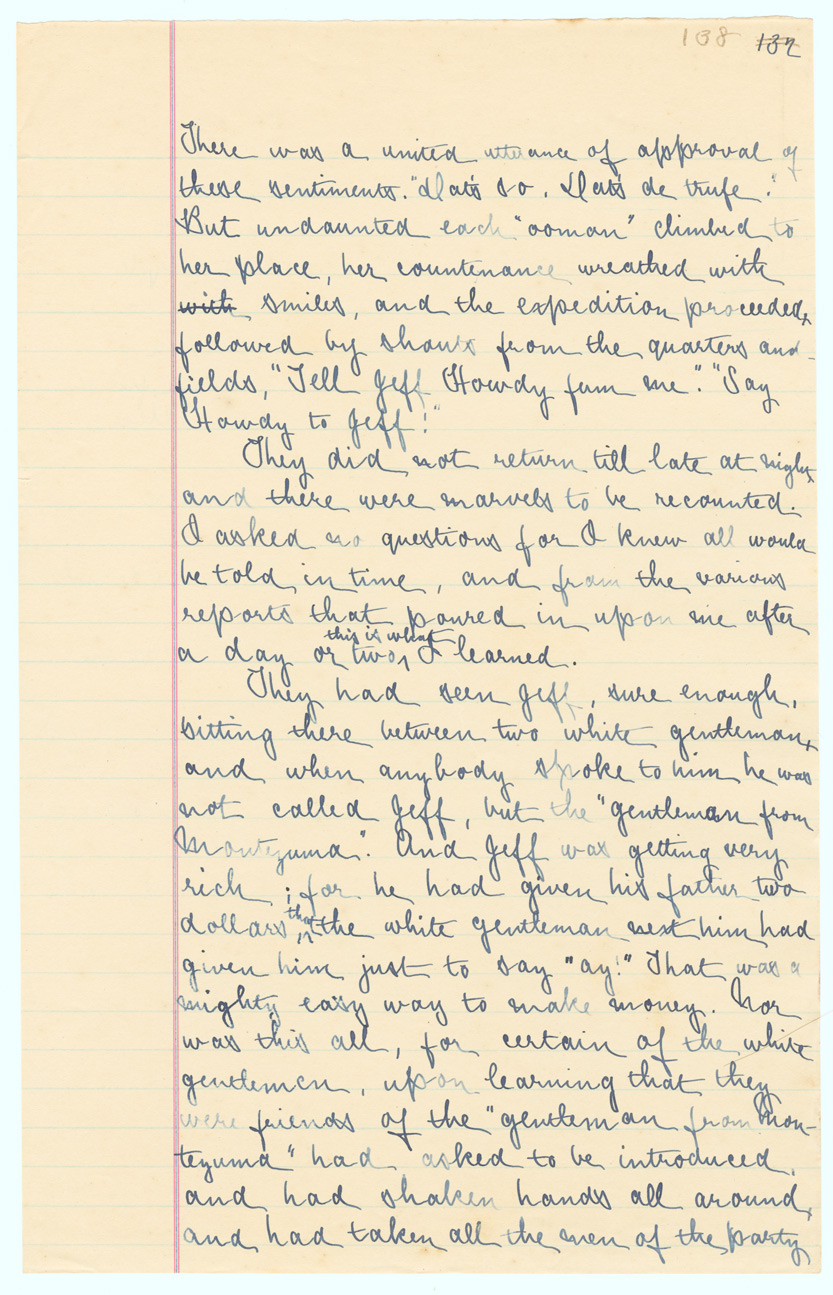 138 132
There was a united utterance of approval of
these sentiments. "Dat's so. Dat's de trufe."
But undaunted each "ooman" climbed to
her place, her countenance wreathed with
with smiles, and the expedition proceeded,
followed by shouts from the quarters and
fields, "Tell Jeff Howdy fum me". "Say
Howdy to Jeff!"
They did not return till late at night,
and there were marvels to be recounted.
I asked no questions for I knew all would
be told in time, and from the various
reports that poured in upon me after
this is what
a day or two, I learned.
They had seen Jeff, sure enough,
sitting there between two white gentleman,
and when anybody spoke to him he was
not called Jeff, but the "gentleman from
Montezuma". And Jeff was getting very
rich; for he had given his father two
that
dollars, the white gentleman next him had
given him just to say "ay!" That was a
mighty easy way to make money. Nor
was this all, for certain of the white
gentlemen, upon learning that they
were friends of the "gentleman from Mon-
tezuma" had asked to be introduced,
and had shaken hands all around,
and had taken all the men of the party